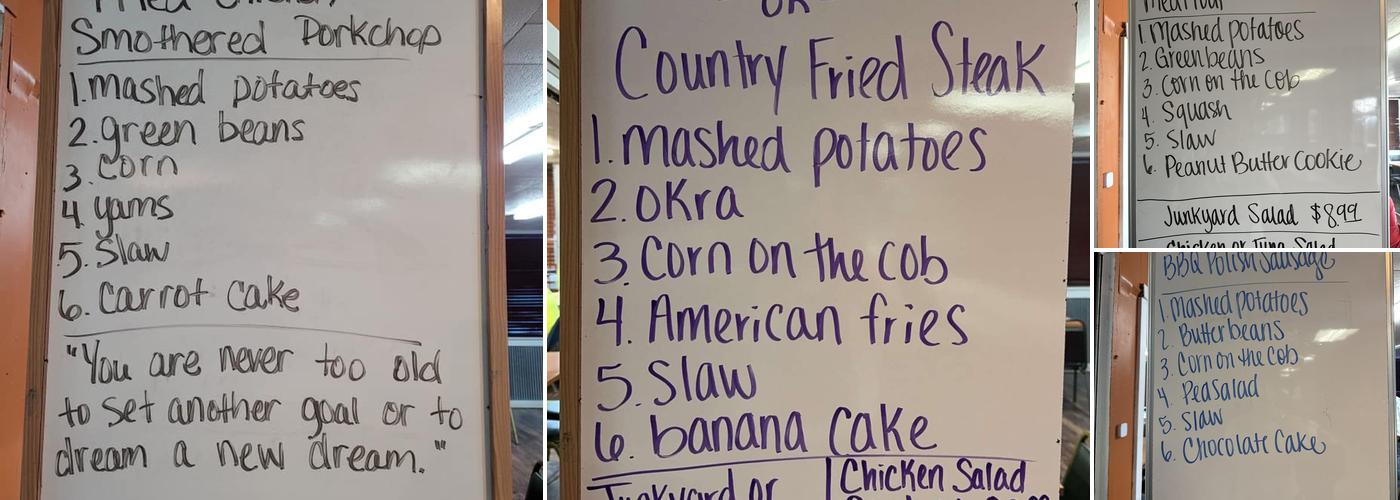 Fried Chicken
Smothered Porkchop
1. mashed potatoes
2. green beans
3. corn
4. yams
5. Slaw
6. Carrot Cake
"You are never too old
to set another goal or to
dream a new dream."
OR
Country Fried Steak
1. mashed potatoes
2. OKra
3. Corn on the cob
4. American fries
5. Slaw
6. banana Cake
Junkyard or
Chicken Salad
Meatloaf
1 Mashed potatoes
2. Greenbeans
3. Corn on the Cob
4. Squash
5. Slaw
6. Peanut Butter Cookie
Junkyard Salad $8.99
Chicken or Tuna Salad
BBQ Polish Sausage
1. Mashed potatoes
2. Butterbeans
3. Corn on the Cob
4. Peasalad
5. Slaw
6. Chocolate Cake